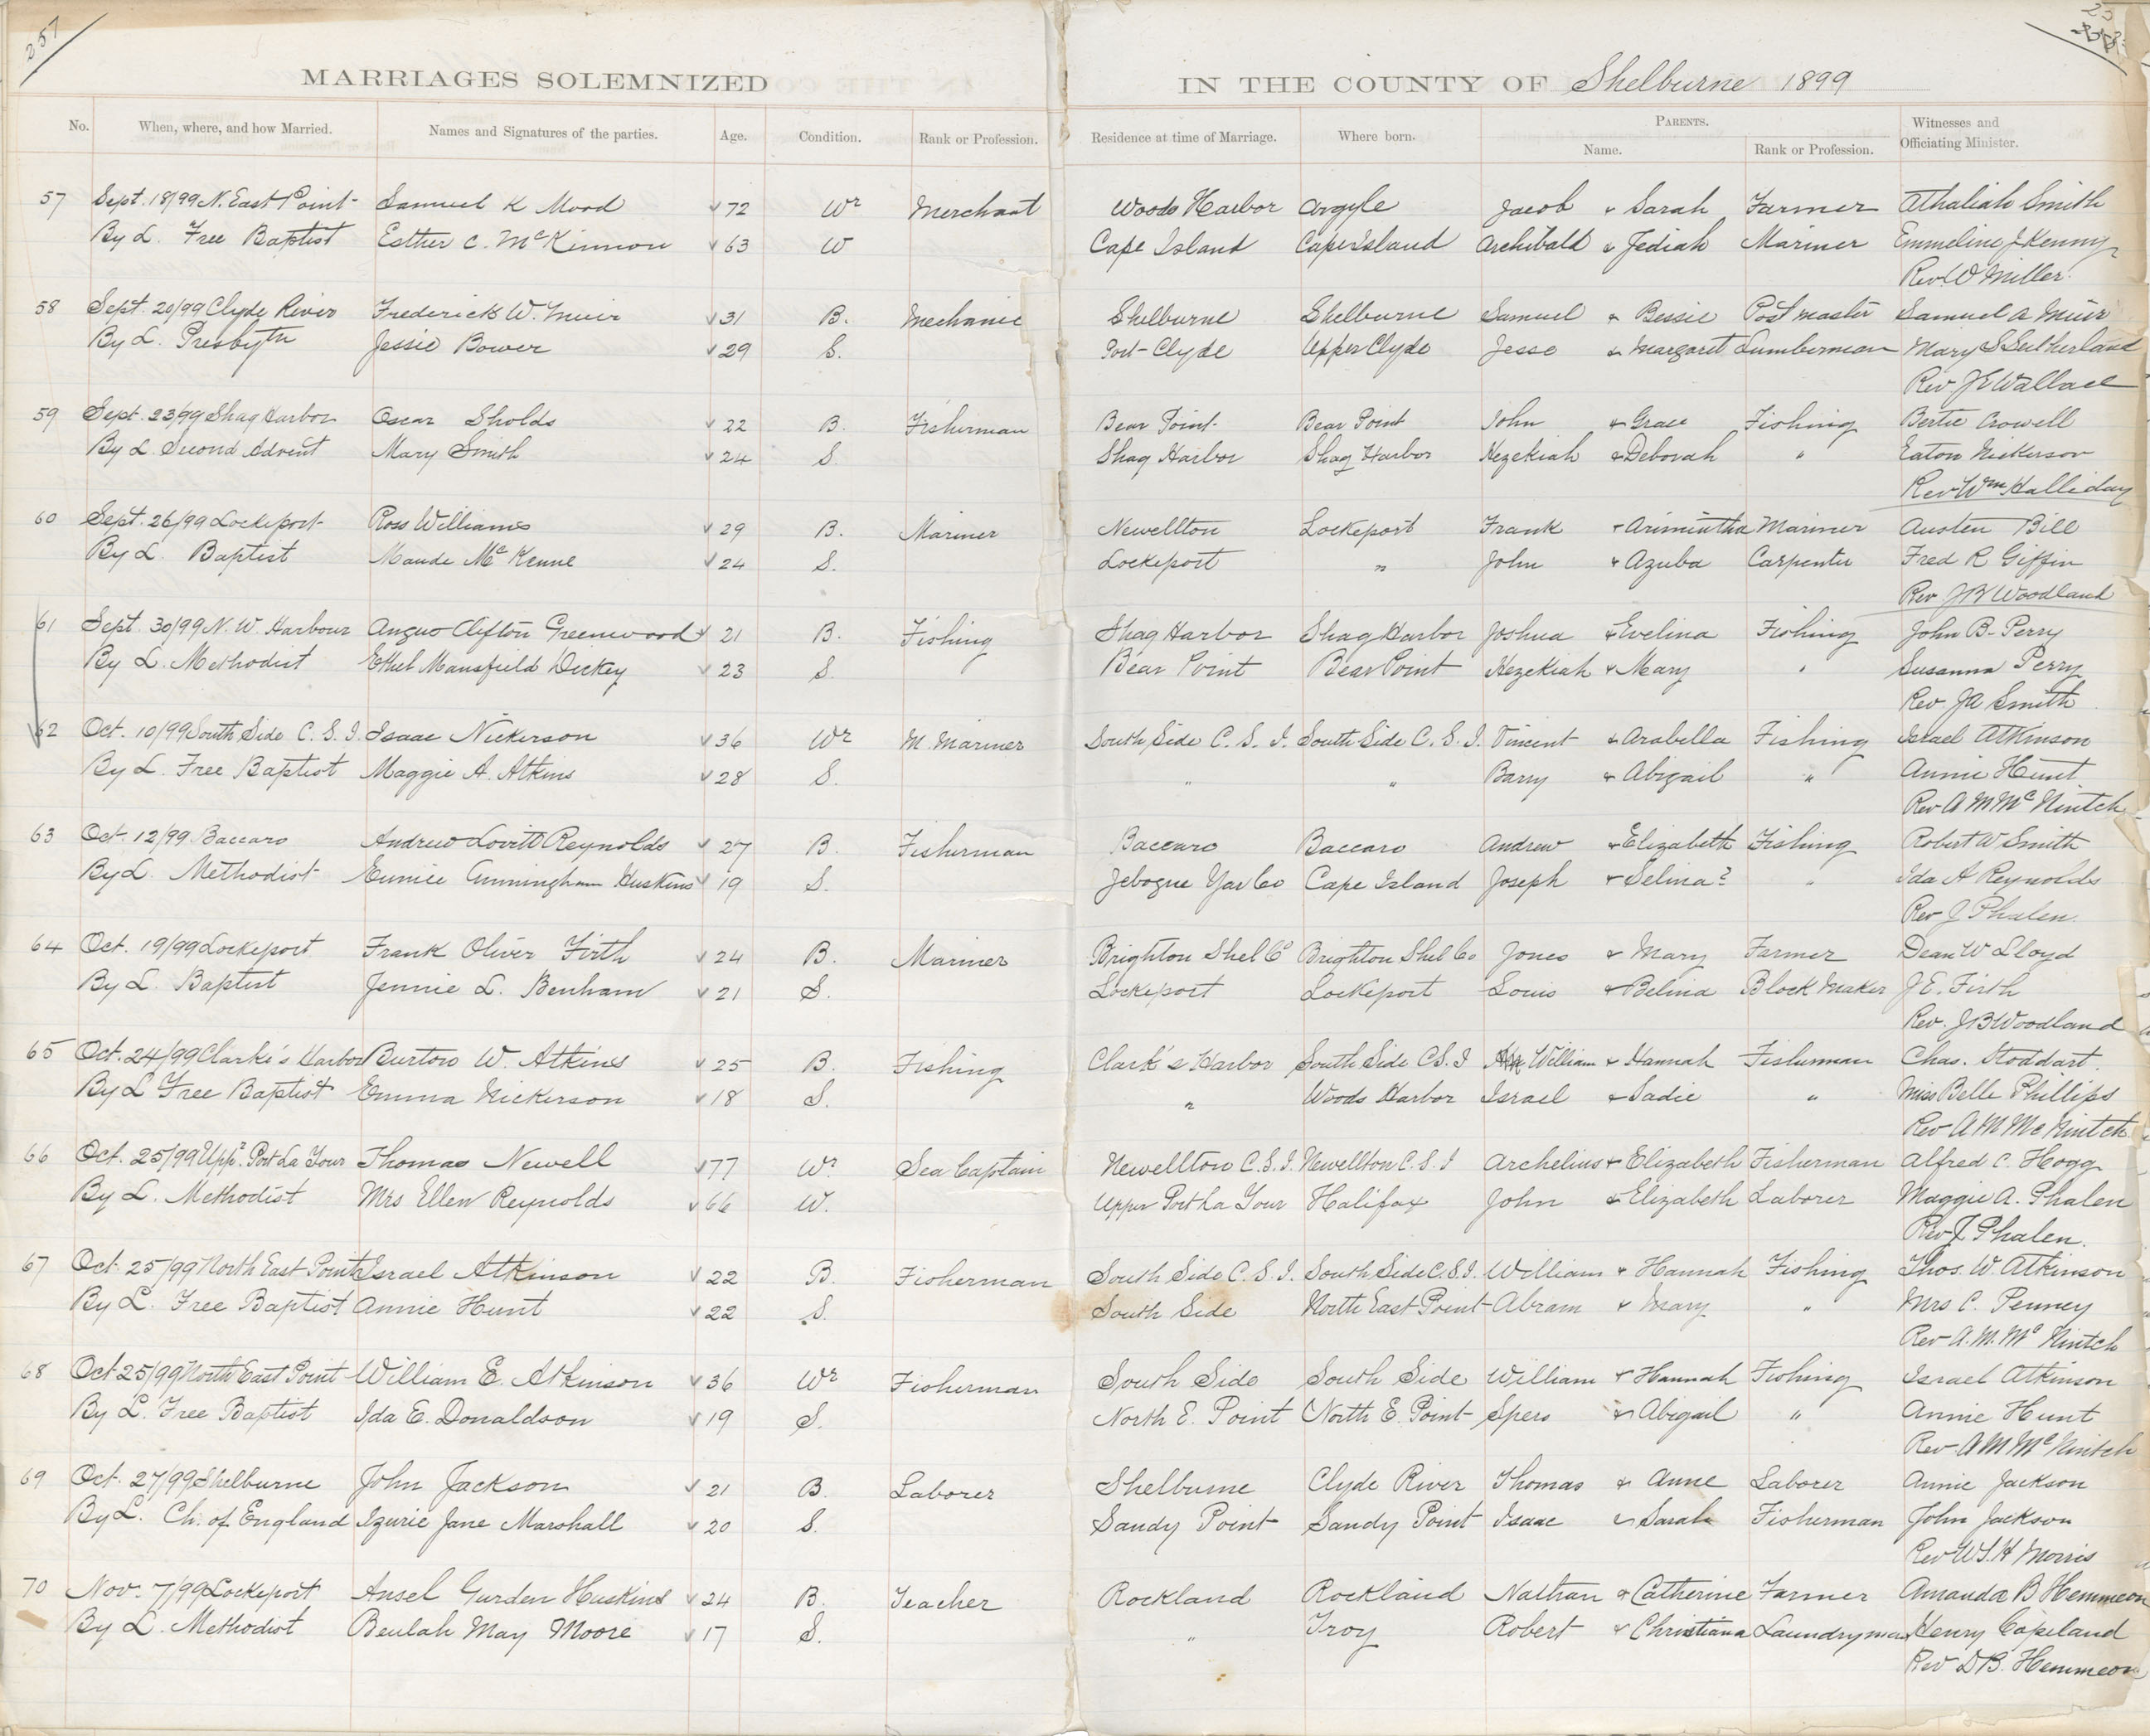 257
MARRIAGES SOLEMNIZED IN THE COUNTY OF Shelburne 1899
No. When, where, and how Married. Names and Signatures of the parties. Age. Condition. Rank or Profession. Residence at time of Marriage. Where born. PARENTS. Name. Rank or Profession. Witnesses and Officiating Minister.
57 Sept. 18/99 N. East Point Samuel K Mood 72 Wr Merchant Woods Harbor Argyle Jacob & Sarah Farmer Athaliah Smith
By L. Free Baptist Esther C. McKinnon 63 W Cape Island Cape Island Archibald & Jediah Mariner Emmeline J Kenny
Rev W Miller
58 Sept. 20/99 Clyde River Frederick W. Muir 31 B. Mechanic Shelburne Shelburne Samuel & Bessie Postmaster Samuel A Muir
By L. Presbytn Jessie Bower 29 S. Port-Clyde Upper Clyde Jesse & Margaret Lumberman Mary S Sutherland
Rev J E Wallace
59 Sept. 23/99 Shag Harbor Oscar Sholds 22 B. Fisherman Bear Point Bear Point John & Grace Fishing Bertie Crowell
By L. Second Advent Mary Smith 24 S. Shag Harbor Shag Harbor Hezekiah & Deborah " Eaton Nickerson
Rev Wm Halliday
60 Sept. 26/99 Lockeport Ross Williams 29 B. Mariner Newellton Lockeport Frank & Arimintha Mariner Austen Bill
By L. Baptist Maude McKenne 24 S. Lockeport " John & Azuba Carpenter Fred R Giffin
Rev J B Woodland
61 Sept. 30/99 N. W. Harbour Angus Clifton Greenwood 21 B. Fishing Shag Harbor Shag Harbor Joshua & Evelina Fishing John B. Perry
By L. Methodist Ethel Mansfield Dickey 23 S. Bear Point Bear Point Hezekiah & Mary " Susanna Perry
Rev. J A Smith
62 Oct. 10/99 South Side C. S. I. Isaac Nickerson 36 Wr M. Mariner South Side C. S. I. South Side C. S. I. Vincent & Arabella Fishing Israel Atkinson
By L. Free Baptist Maggie A. Atkins 28 S. " " Barry & Abigail " Annie Hunt
Rev A M McNintch
63 Oct. 12/99 Baccaro Andrew Lovitt Reynolds 27 B. Fisherman Baccaro Baccaro Andrew & Elizabeth Fishing Robert W Smith
By L. Methodist Eunice Cunningham Huskins 19 S. Jebogue Yar Co Cape Island Joseph & Selina? " Ida A Reynolds
Rev J Phalen.
64 Oct. 19/99 Lockeport Frank Oliver Firth 24 B. Mariner Brighton Shel Co Brighton Shel Co Jones & Mary Farmer Dean W Lloyd
By L. Baptist Jennie L. Benham 21 S. Lockeport Lockeport Louis & Belina Block Maker J. E. Firth
Rev. J B Woodland
65 Oct. 24/99 Clarke's Harbor Burton W. Atkins 25 B. Fishing Clark's Harbor South Side C S. I William & Hannah Fisherman Chas. Stoddart.
By L Free Baptist Emma Nickerson 18 S. " Woods Harbor Israel & Sadie " Miss Belle Phillips
Rev A M McNintch
66 Oct. 25/99 Uppr. Port La Tour Thomas Newell 77 Wr Sea Captain Newellton C. S. I. Newellton C. S. I Archelius & Elizabeth Fisherman Alfred C. Hogg
By L. Methodist Mrs Ellen Reynolds 66 W. Upper Port La Tour Halifax John & Elizabeth Laborer Maggie A. Phalen
Rev J Phalen.
67 Oct. 25/99 North East Point Israel Atkinson 22 B. Fisherman South Side C. S. I. South Side C. S. I. William & Hannah Fishing Thos. W. Atkinson
By L. Free Baptist Annie Hunt 22 S. South Side North East Point Abram & Mary " Mrs C. Penney
Rev A. M. McNintch
68 Oct 25/99 North East Point William E. Atkinson 36 Wr Fisherman South Side South Side William & Hannah Fishing Israel Atkinson
By L. Free Baptist Ida E. Donaldson 19 S. North E. Point North E. Point Spero & Abigail " Annie Hunt
Rev A M McNintch
69 Oct. 27/99 Shelburne John Jackson 21 B. Laborer Shelburne Clyde River Thomas & Anne Laborer Annie Jackson
By L. Ch. of England Izurie Jane Marshall 20 S. Sandy Point Sandy Point Isaac & Sarah Fisherman John Jackson
Rev W. S. H Morris
70 Nov. 7/99 Lockeport Ansel Gurden Huskins 24 B. Teacher Rockland Rockland Nathan & Catherine Farmer Amanda B Hemmeon
By L. Methodist Beulah May Moore 17 S. " Troy Robert & Christiana Laundryman Henry Copeland
Rev D B. Hemmeon